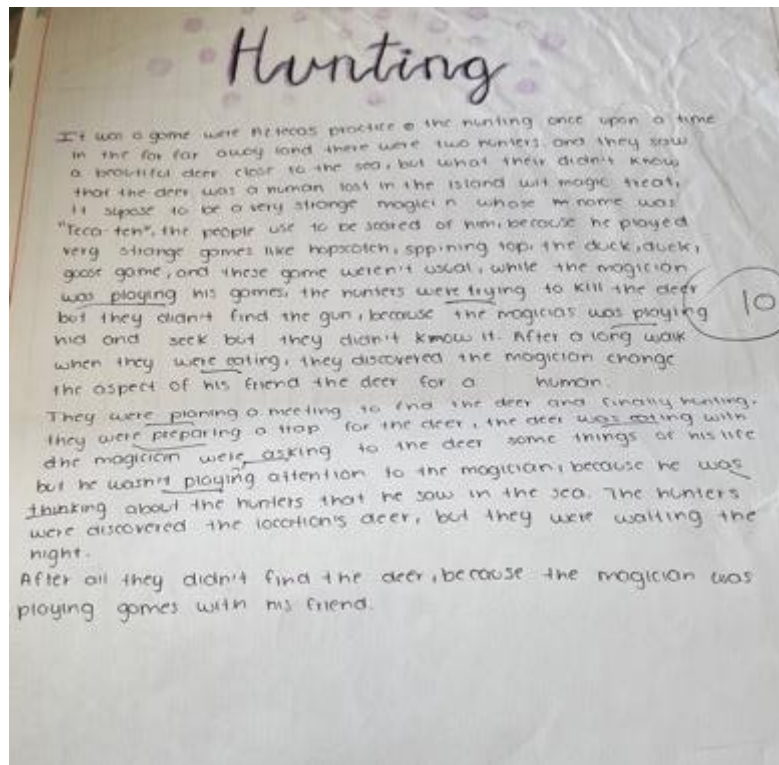 Hunting
It was a game were Aztecas practice the hunting once upon a time
in the far far away land there were two hunters and they saw
a beautiful deer close to the sea, but what their didn't know
that the deer was a human lost in the island wit magic treat,
it supose to be a very strange magician whose name was
"Teca-ten", the people use to be scared of him, because he played
very strange games like hopscotch, sppining top, the duck, duck,
goose game, and these game weren't usual, while the magician
was playing his games, the hunters were trying to kill the deer
but they didn't find the gun, because the magicias was playing
hid and seek but they didn't know it. After a long walk
when they were eating, they discovered the magician change
the aspect of his friend the deer for a human.
They were planing a meeting to find the deer and finally hunting.
they were preparing a trap for the deer, the deer was eating with
the magiciam were asking to the deer some things of his life
but he wasn't playing attention to the magician, because he was
thinking about the hunters that he saw in the sea. The hunters
were discovered the location's deer, but they were waiting the
night.
After all they didn't find the deer, because the magician was
playing games with his friend.
10